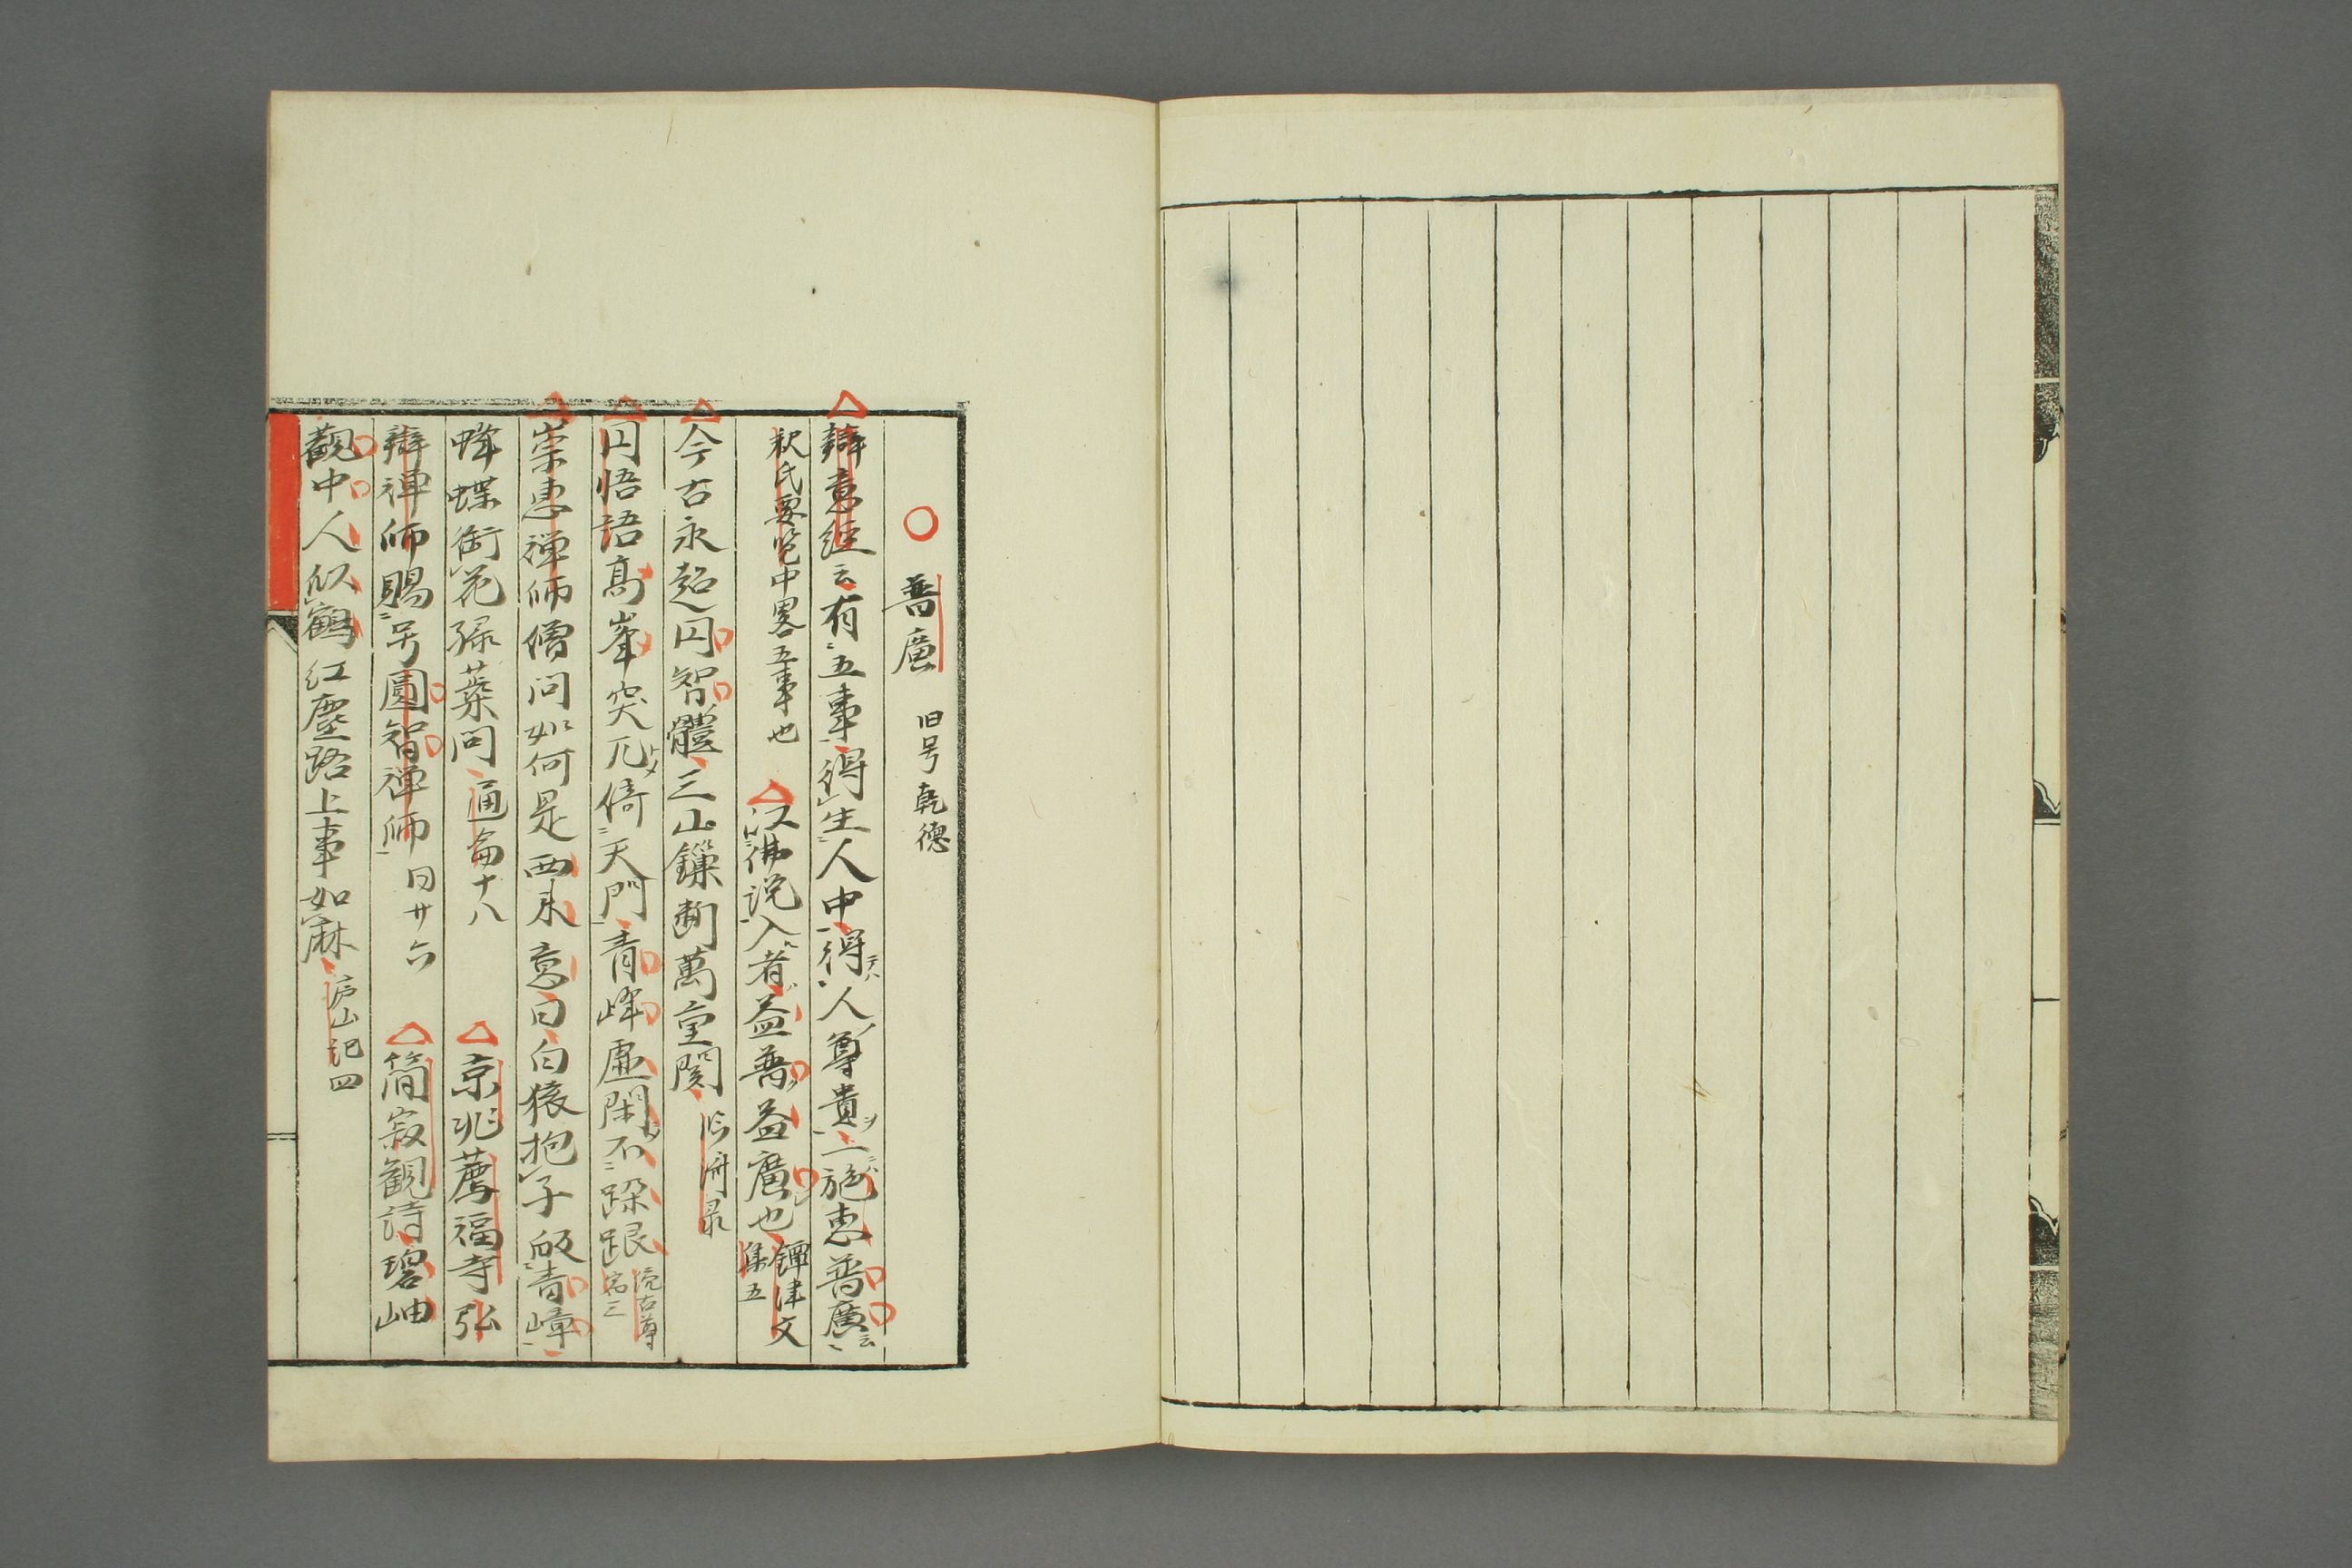 普廣 旧号乾徳
辯意經云有五事得生人中得人尊貴一施恵普廣云
釈氏要覧中畧五事也 以佛説入者益普益廣也 鐔津文集五
今古永超円智體三山鏁断萬重関 臨済录
円悟語髙峯突兀倚天門青峰虚閑不跺跟 古尊宿三
崇恵禅師僧問如何是西来意曰白猿抱子皈青嶂
蜂蝶銜花緑蘂間 通侖十八 京兆薦福寺弘
辯禅師賜号圓智禅師 曰廿六 簡寂観詩碧岫
觀中人似鶴紅塵路上事如麻 庐山記四